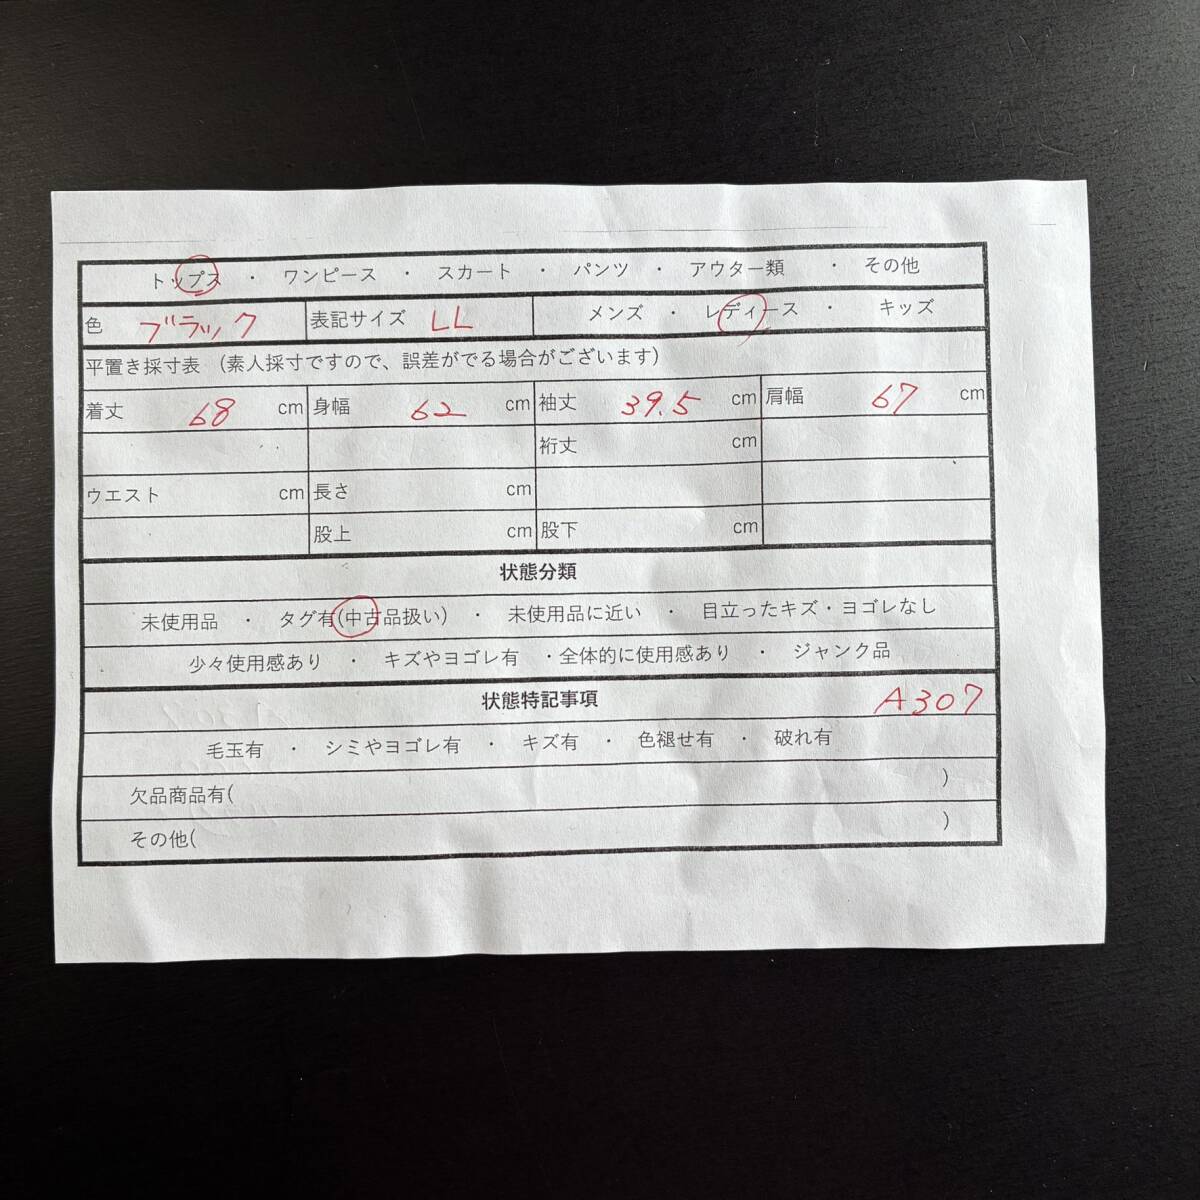 トップス ・ ワンピース ・ スカート ・ パンツ ・ アウター類 ・ その他
色 ブラック 表記サイズ LL メンズ ・ レディース ・ キッズ
平置き採寸表 (素人採寸ですので、誤差がでる場合がございます)
着丈 68 cm 身幅 62 cm 袖丈 39.5 cm 肩幅 67 cm
裄丈 cm
ウエスト cm 長さ cm
股上 cm 股下 cm
状態分類
未使用品 ・ タグ有(中古品扱い) ・ 未使用品に近い ・ 目立ったキズ・ヨゴレなし
少々使用感あり ・ キズやヨゴレ有 ・全体的に使用感あり ・ ジャンク品
状態特記事項 A307
毛玉有 ・ シミやヨゴレ有 ・ キズ有 ・ 色褪せ有 ・ 破れ有
欠品商品有( )
その他( )